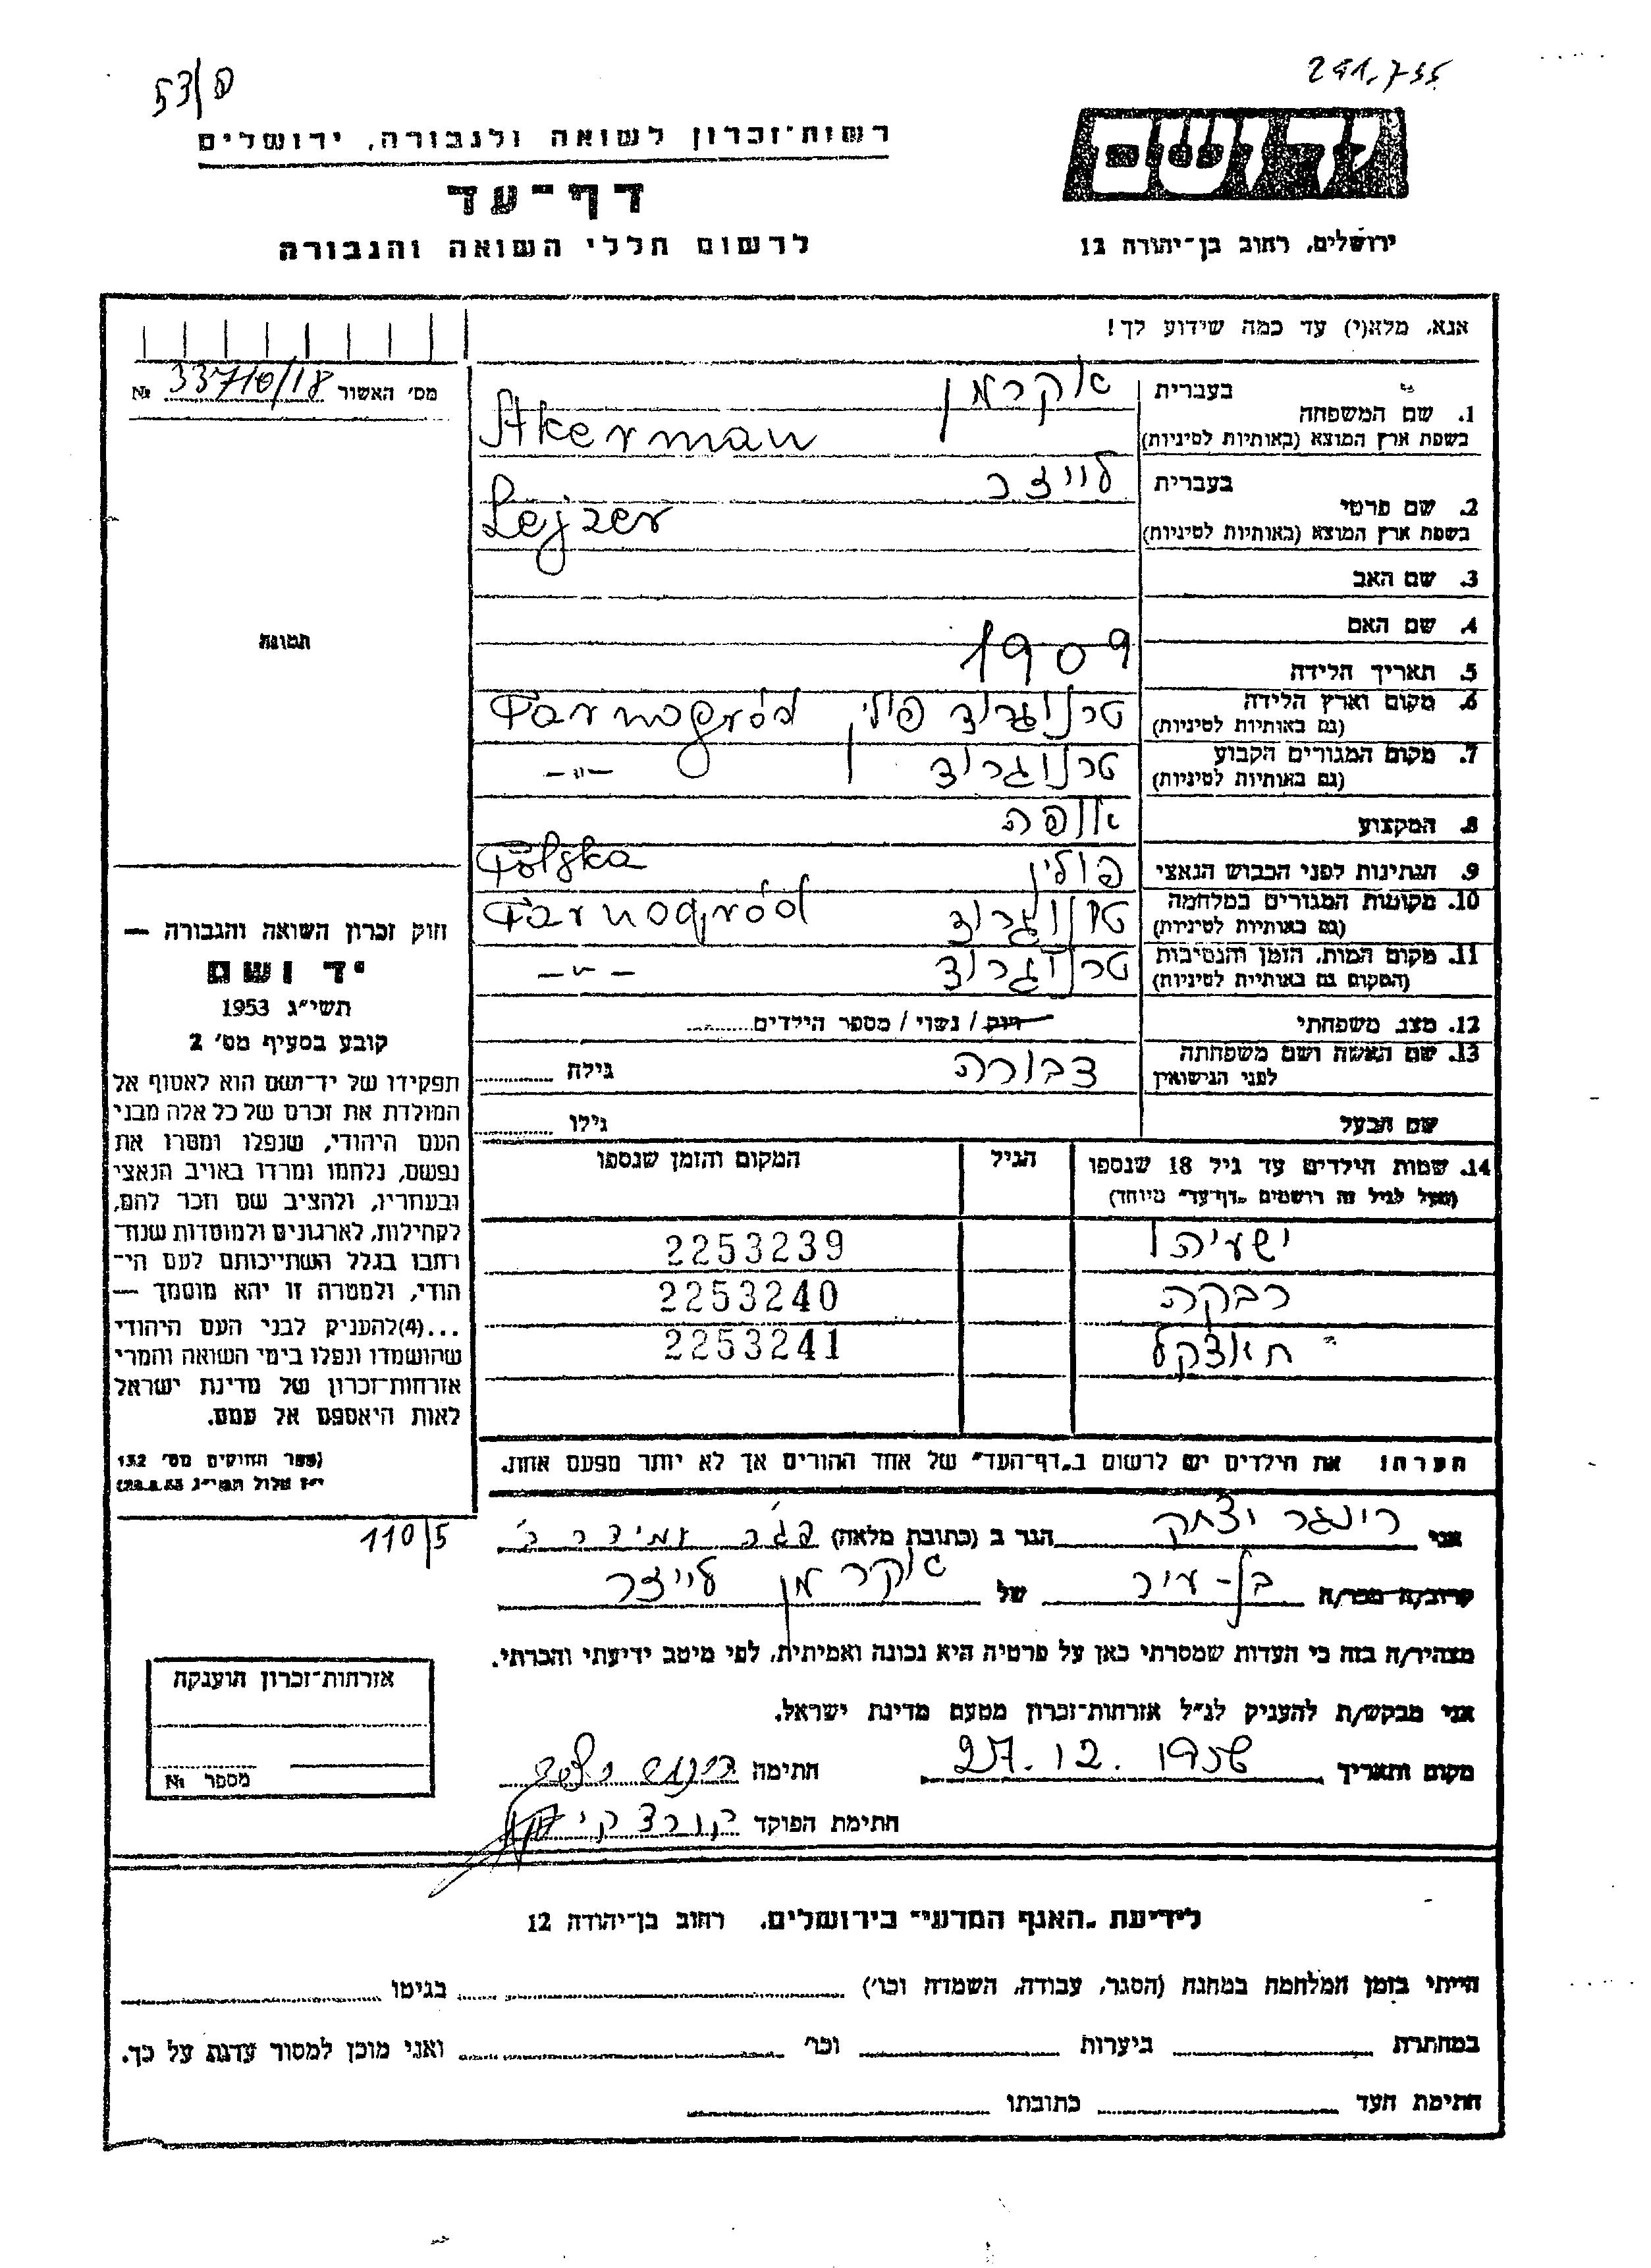 53/פ
291.755
רשות־זכרון לשואה ולגבורה, ירושלים
יד ושם
דף־עד
לרשום חללי השואה והגבורה
ירושלים, רחוב בן־יהודה 12
אנא, מלא(י) עד כמה שידוע לך!
מס׳ האשור 33710/18 №
1. שם המשפחה
בעברית אקרמן
בשפת ארץ המוצא (באותיות לטיניות) Akerman
2. שם פרטי
בעברית לייזר
בשפת ארץ המוצא (באותיות לטיניות) Lejzer
3. שם האב
4. שם האם
תמונה
5. תאריך הלידה 1909
6. מקום וארץ הלידה (גם באותיות לטיניות) טרנוגרוד פולין Tarnogród
7. מקום המגורים הקבוע (גם באותיות לטיניות) טרנוגרוד —״—
8. המקצוע אופה
9. הנתינות לפני הכבוש הנאצי פולין Polska
10. מקומות המגורים במלחמה (גם באותיות לטיניות) טרנוגרוד Tarnogród
11. מקום המות, הזמן והנסיבות (המקום גם באותיות לטיניות) טרנוגרוד —״—
12. מצב משפחתי רוק / נשוי / מספר הילדים
13. שם האשה ושם משפחתה לפני הנישואין דבורה גילה
שם הבעל גילו
14. שמות הילדים עד גיל 18 שנספו הגיל המקום והזמן שנספו
(מעל לגיל זה רושמים ״דף־עד״ מיוחד)
ישעיהו 2253239
רבקה 2253240
חאצקל 2253241
הערה: את הילדים יש לרשום ב״דף־העד״ של אחד ההורים אך לא יותר מפעם אחת.
חוק זכרון השואה והגבורה —
יד ושם
תשי״ג 1953
קובע בסעיף מס׳ 2
תפקידו של יד־ושם הוא לאסוף אל
המולדת את זכרם של כל אלה מבני
העם היהודי, שנפלו ומסרו את
נפשם, נלחמו ומרדו באויב הנאצי
ובעוזריו, ולהציב שם וזכר להם,
לקהילות, לארגונים ולמוסדות שנח־
רבו בגלל השתייכותם לעם הי־
הודי, ולמטרה זו יהא מוסמך —
...(4)להעניק לבני העם היהודי
שהושמדו ונפלו בימי השואה והמרי
אזרחות־זכרון של מדינת ישראל
לאות היאספם אל עמם.
(ספר החוקים מס׳ 132
י״ז אלול תשי״ג 28.8.53)
110/5
אני רינגר יצחק הגר ב (כתובת מלאה)
קרוב/ה מכר/ה בן־עיר של אקרמן לייזר
מצהיר/ה בזה כי העדות שמסרתי כאן על פרטיה היא נכונה ואמיתית, לפי מיטב ידיעתי והכרתי.
אני מבקש/ת להעניק לנ״ל אזרחות־זכרון מטעם מדינת ישראל.
מקום ותאריך 27.12.1956 חתימה רינגר יצחק
חתימת הפוקד
אזרחות־זכרון הוענקה
מספר №
לידיעת ״האגף המדעי״ בירושלים, רחוב בן־יהודה 12
הייתי בזמן המלחמה במחנה (הסגר, עבודה, השמדה וכו׳) בגיטו
במחתרת ביערות וכו׳ ואני מוכן למסור עדות על כך.
חתימת העד כתובתו